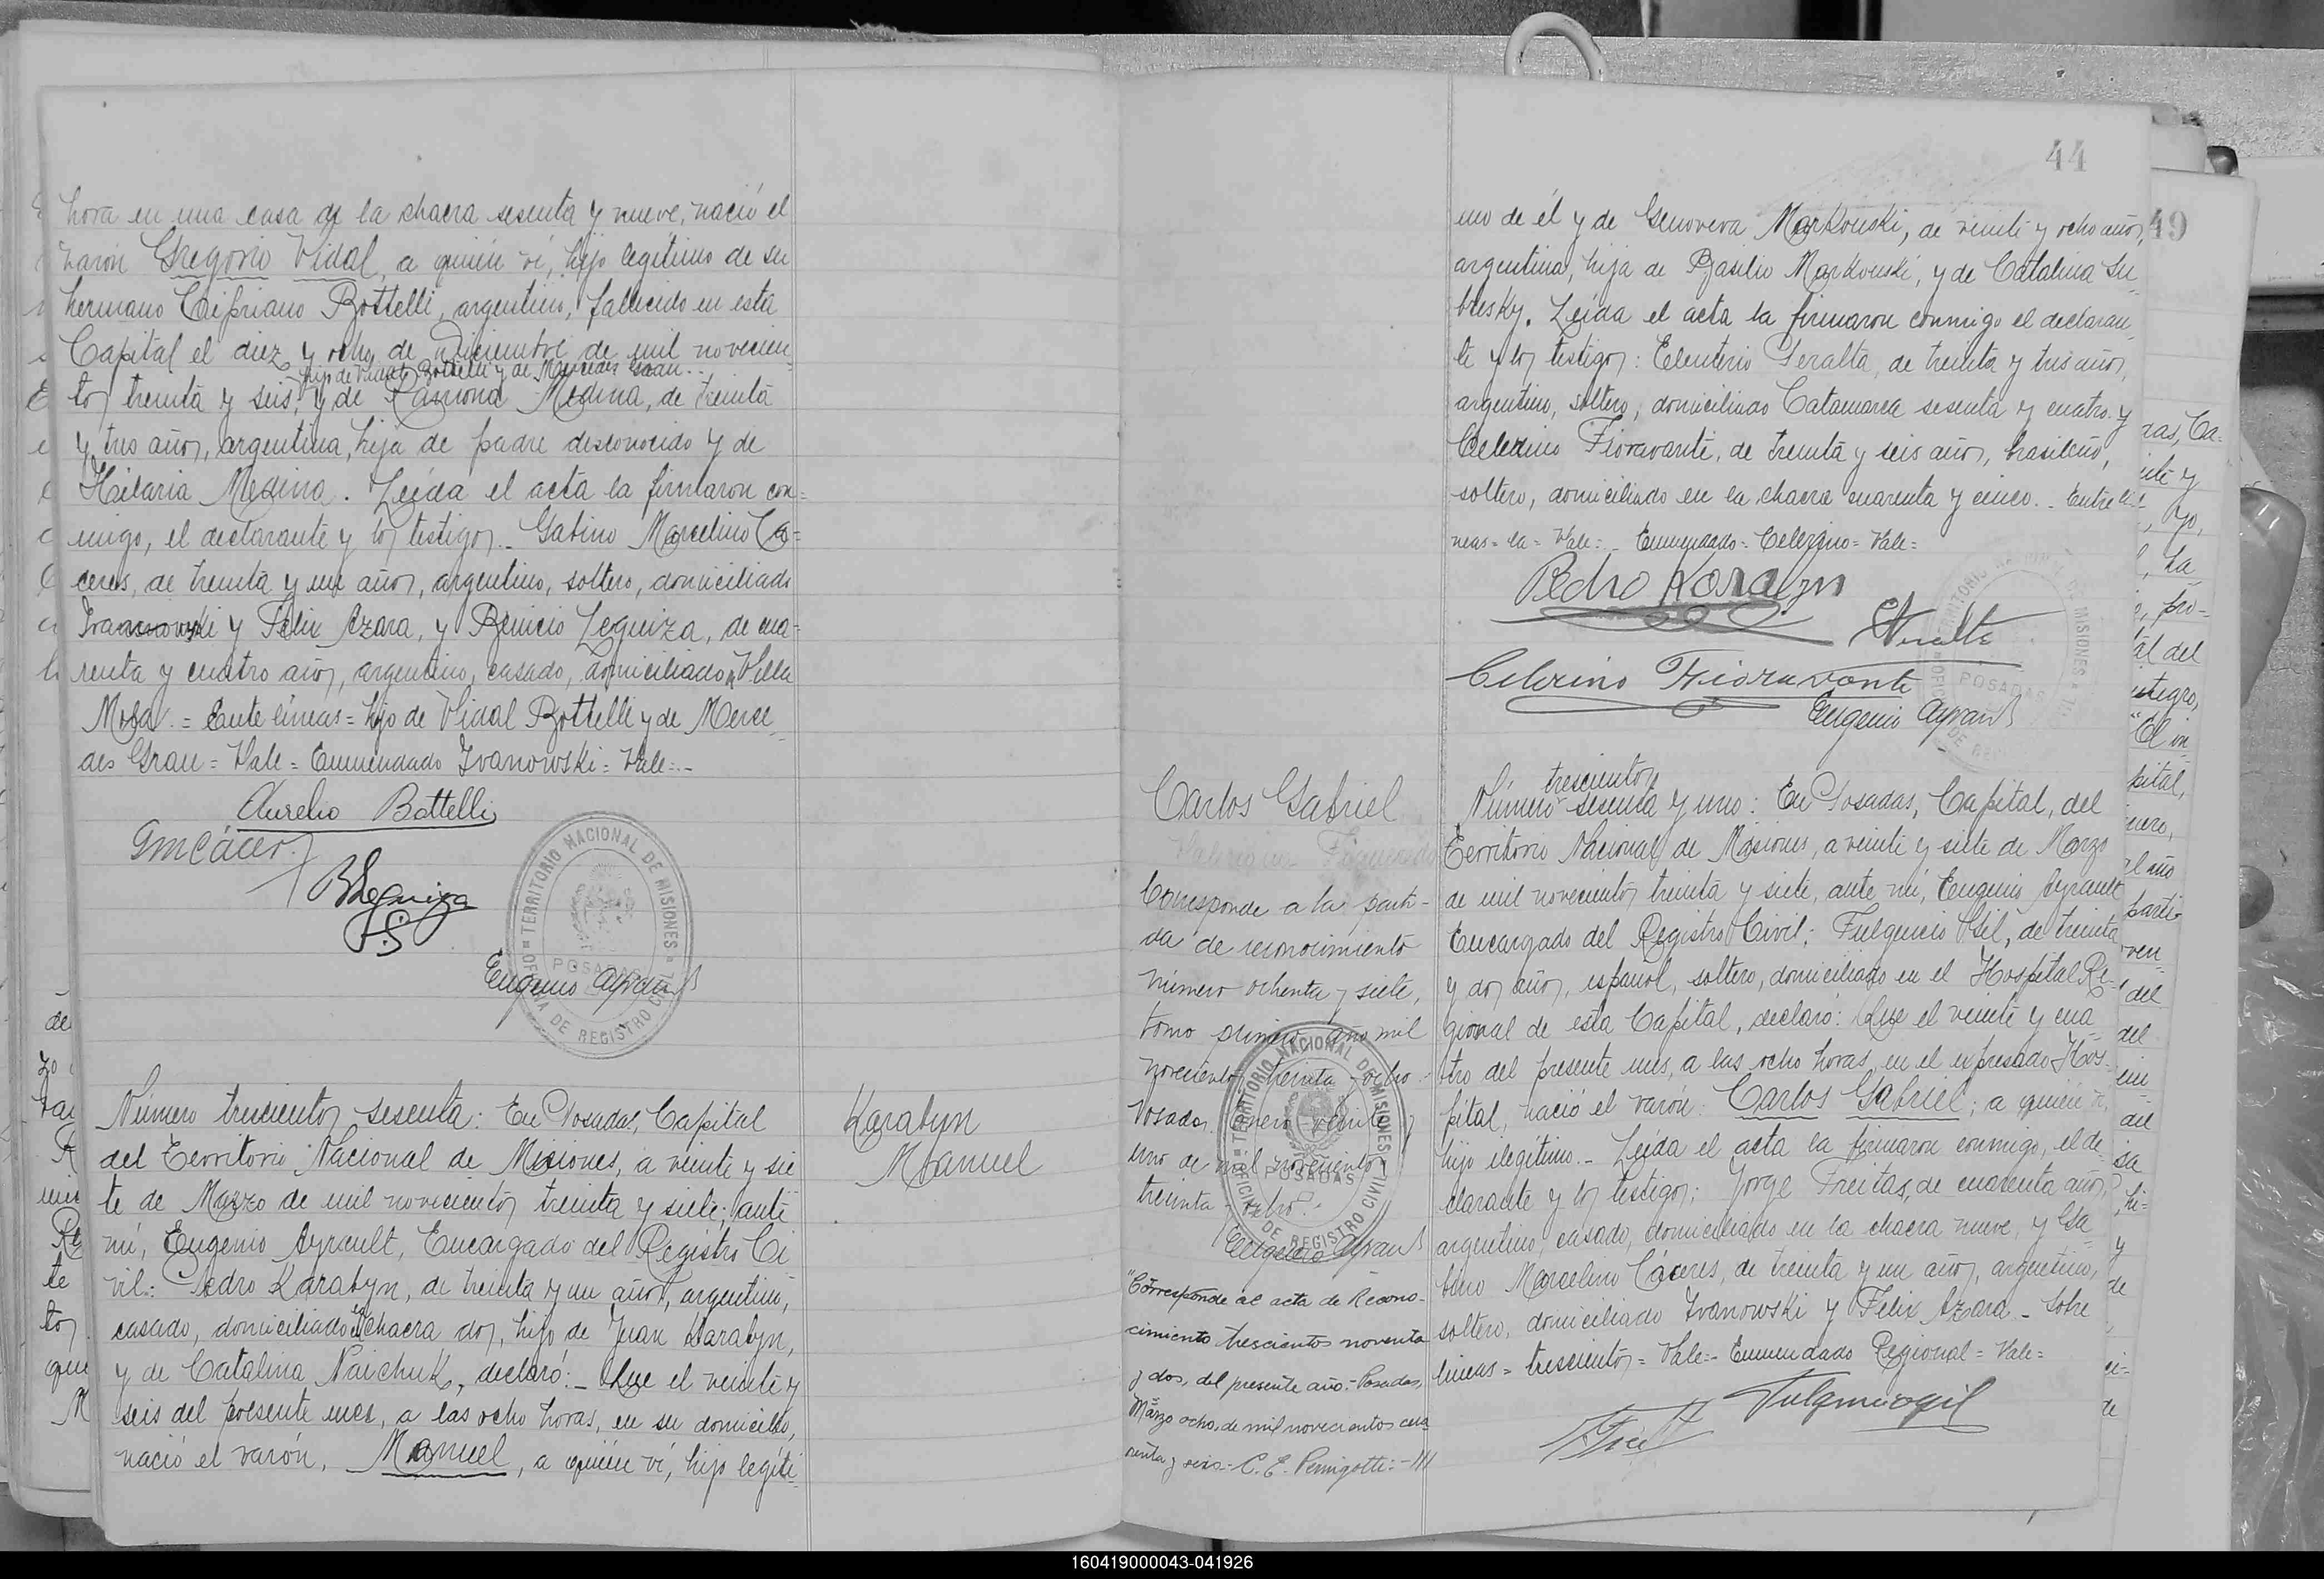 hora en una casa de la chacra sesenta y nueve, nació el
varón Gregorio Vidal, a quién ví, hijo legítimo de su
hermano Cipriano Bottelli, argentino, fallecido en esta
Capital el diez y ocho de Diciembre de mil novecien-
hijo de Vidal Bottelli y de Mercedes Grau.
tos treinta y seis, y de Ramona Medina, de treinta
y tres años, argentina, hija de padre desconocido y de
Hilaria Medina. Leída el acta la firmaron con=
migo, el declarante y los testigos. Gabino Marcelino Cá=
ceres, de treinta y un años, argentino, soltero, domiciliado
Ivanowski y Felix Azara, y Benicio Leguiza, de cua-
renta y cuatro años, argentino, casado, domiciliado Villa
= Entre líneas = hijo de Vidal Bottelli y de Merce
des Grau = Vale = Enmendado Ivanowski = Vale =.-
Aurelio Bottelli
GmCácer
BLeguiza
TERRITORIO NACIONAL DE MISIONES
POSADAS
OFICINA DE REGISTRO CIVIL
Eugenio Ayrault
Número trescientos sesenta: En Posadas, Capital
del Territorio Nacional de Misiones, a veinte y sie
te de Marzo de mil novecientos treinta y siete; ante
mí, Eugenio Ayrault, Encargado del Registro Ci
vil: Pedro Karabyn, de treinta y un años, argentino,
casado, domiciliado en chacra dos, hijo de Juan Karabyn,
y de Catalina Naichuk, declaró:- Que el veinte y
seis del presente mes, a las ocho horas, en su domicilio,
nació el varón, Manuel, a quién ví, hijo legíti-
Karabyn
Manuel
44
49
mo de él y de Genoveva Markouski, de veinte y ocho años,
argentina, hija de Basilio Markouski, y de Catalina Su
blesky. Leída el acta la firmaron conmigo el declaran
te y los testigos: Eleuterio Peralta, de treinta y tres años,
argentino, soltero, domiciliado Catamarca sesenta y cuatro y
Celerino Fioravanti, de treinta y seis años, brasileño,
soltero, domiciliado en la chacra cuarenta y cinco.- Entre li-
neas = la = Vale =- Enmendado = Celerino = Vale =
Pedro Karabyn
Peralta
Celerino Fioravanti
Eugenio Ayrault
Carlos Gabriel
Figueredo
Corresponde a la parti-
da de reconocimiento
número ochenta y siete,
tomo primero año mil
novecientos treinta y ocho.-
Posadas, Enero veinte y
uno de mil novecientos
treinta y ocho.-
TERRITORIO NACIONAL DE MISIONES
POSADAS
OFICINA DE REGISTRO CIVIL
Eugenio Ayrault
"Corresponde al acta de Recono-
cimiento trescientos noventa
y dos, del presente año.- Posadas,
Marzo ocho, de mil novecientos cua
renta y seis.- C. E. Pernigotti:-///
trescientos
Número sesenta y uno: En Posadas, Capital, del
Territorio Nacional de Misiones, a veinte y siete de Marzo
de mil novecientos treinta y siete, ante mí, Eugenio Ayrault
Encargado del Registro Civil; Fulgencio Gil, de treinta
y dos años, español, soltero, domiciliado en el Hospital Re-
gional de esta Capital, declaró: Que el veinte y cua
tro del presente mes, a las ocho horas, en el expresado Hos-
pital, nació el varón: Carlos Gabriel; a quién ví,
hijo ilegítimo.- Leída el acta la firmaron conmigo, el de
clarante y los testigos; Jorge Freitas, de cuarenta años,
argentino, casado, domiciliado en la chacra nueve, y Ga
bino Marcelino Cáceres, de treinta y un años, argentino,
soltero, domiciliado Ivanowski y Felix Azara.- Sobre
líneas = trescientos = Vale =- Enmendado Regional = Vale =
Fulgencio gil
160419000043-041926